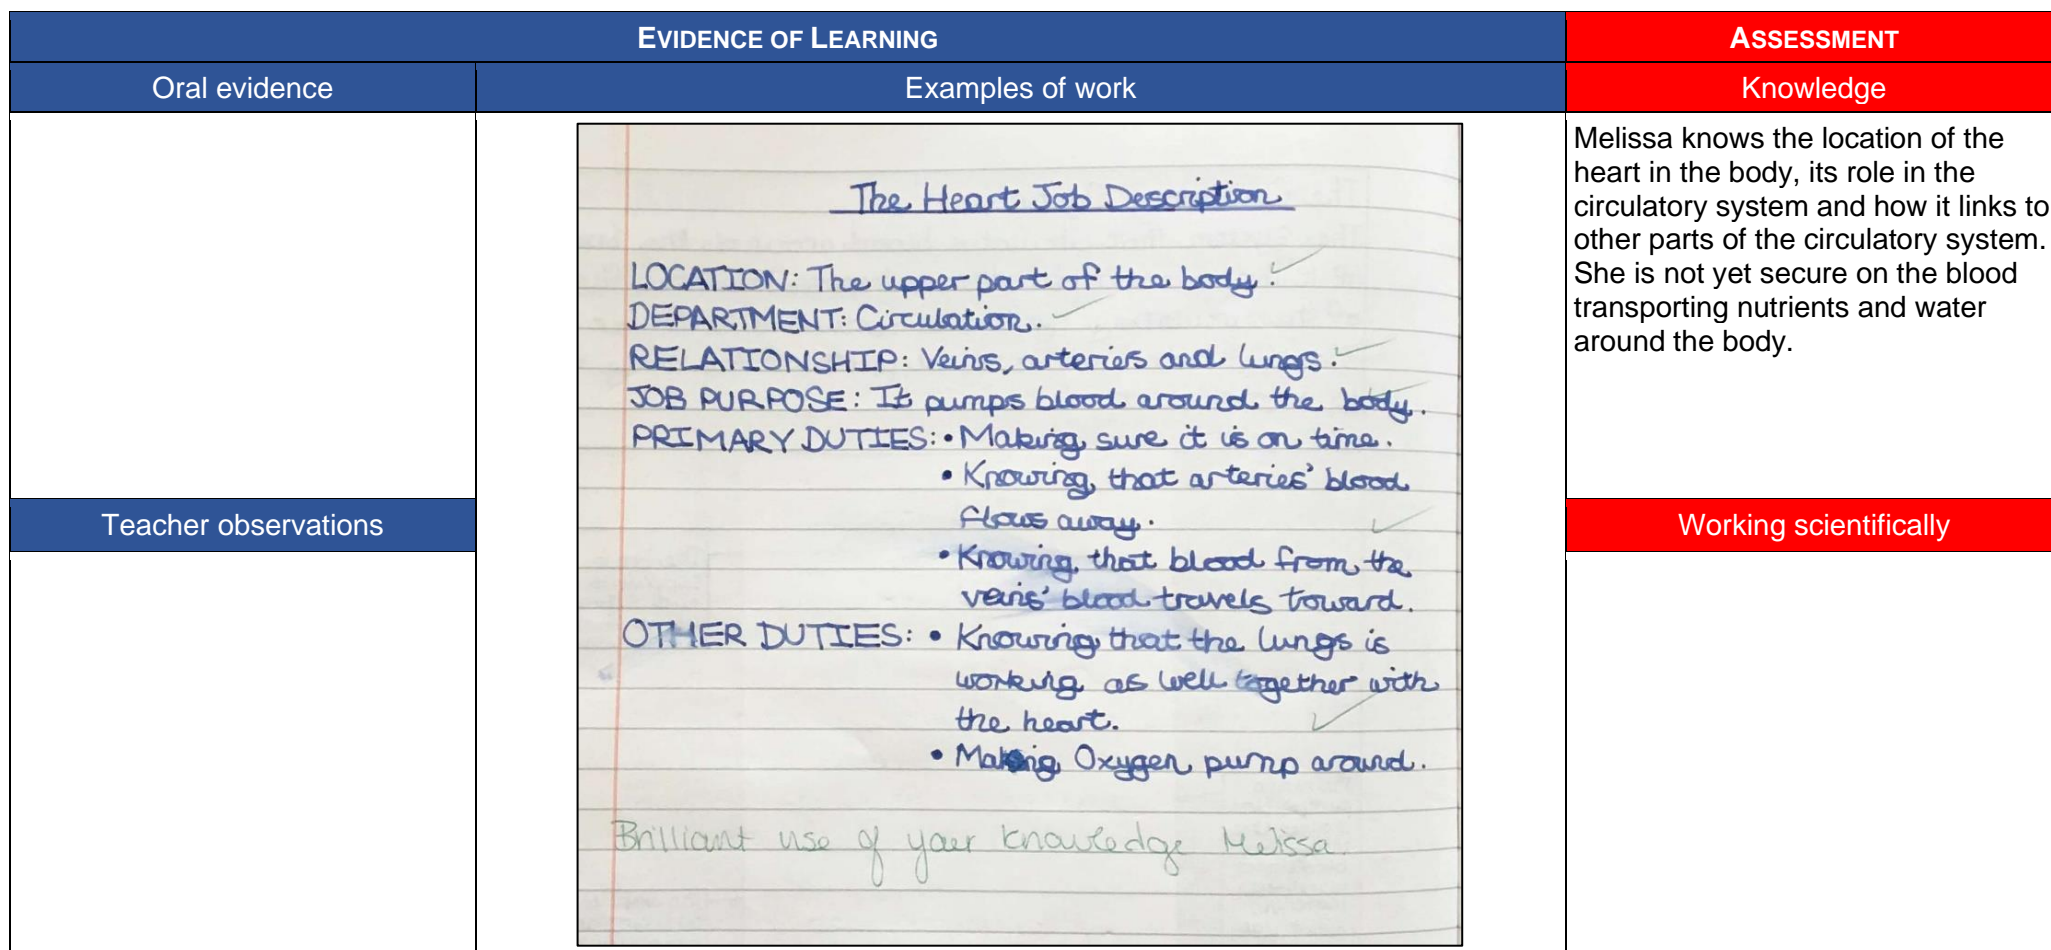 EVIDENCE OF LEARNING
ASSESSMENT
Oral evidence
Examples of work
Knowledge
The Heart Job Description
LOCATION: The upper part of the body.
DEPARTMENT: Circulation.
RELATIONSHIP: Veins, arteries and lungs.
JOB PURPOSE: It pumps blood around the body.
PRIMARY DUTIES: • Making sure it is on time.
• Knowing that arteries' blood
flows away.
• Knowing that blood from the
veins' blood travels toward.
OTHER DUTIES: • Knowing that the lungs is
working as well together with
the heart.
• Making Oxygen pump around.
Brilliant use of your knowledge Melissa.
Melissa knows the location of the
heart in the body, its role in the
circulatory system and how it links to
other parts of the circulatory system.
She is not yet secure on the blood
transporting nutrients and water
around the body.
Teacher observations
Working scientifically